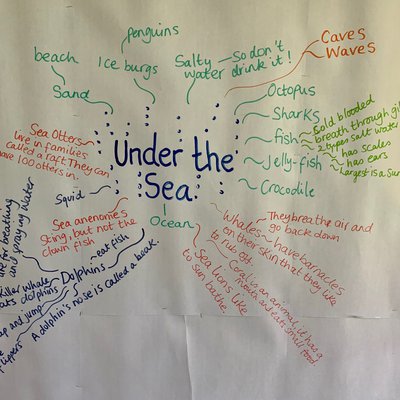 penguins
beach
Ice burgs
Salty
water
So don't
drink it!
Caves
Waves
Sand
Octopus
Sharks
fish
Cold blooded
breath through gi
2 types salt water
has scales
has ears
Largest is a Su
Jelly-fish
Crocodile
Sea Otters
live in families
called a raft. They can
have 100 others in.
Under the
Sea
Squid
Sea anenomies
Sting, but not the
clown fish
Ocean
Whales
They breathe air and
go back down
have barnacles
on their skin that they like
to rub off
Coral is an animal, it has a
mouth and eats small food
Sea lions like
to sun bathe
are for breathing
and spraying water
killer whale
eats dolphins
Dolphins
eat fish
and jump
A dolphin's nose is called a beak.
flippers